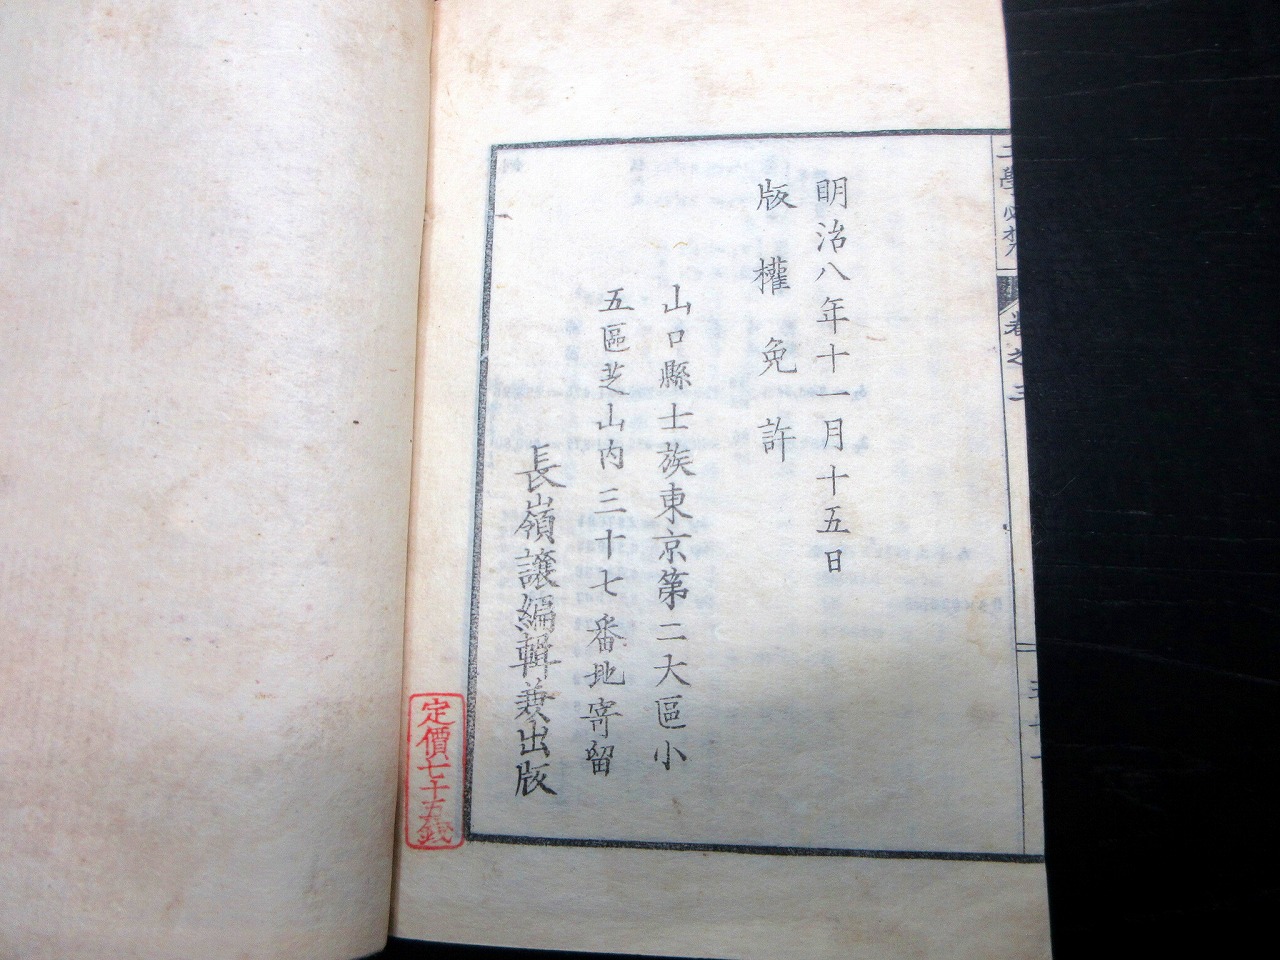 學必携
卷之三
明治八年十一月十五日
版權免許
山口縣士族東京第二大區小
五區芝山内三十七番地寄留
長嶺讓編輯兼出版
定價七十五錢